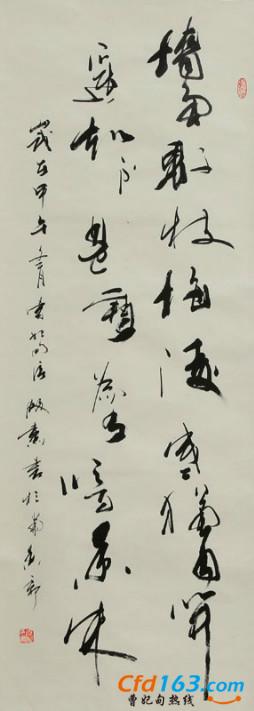 墙角数枝梅凌寒独自开
遥知不是雪为有暗香来
岁在甲午 月 书于
Cfd163.com
曹妃甸热线